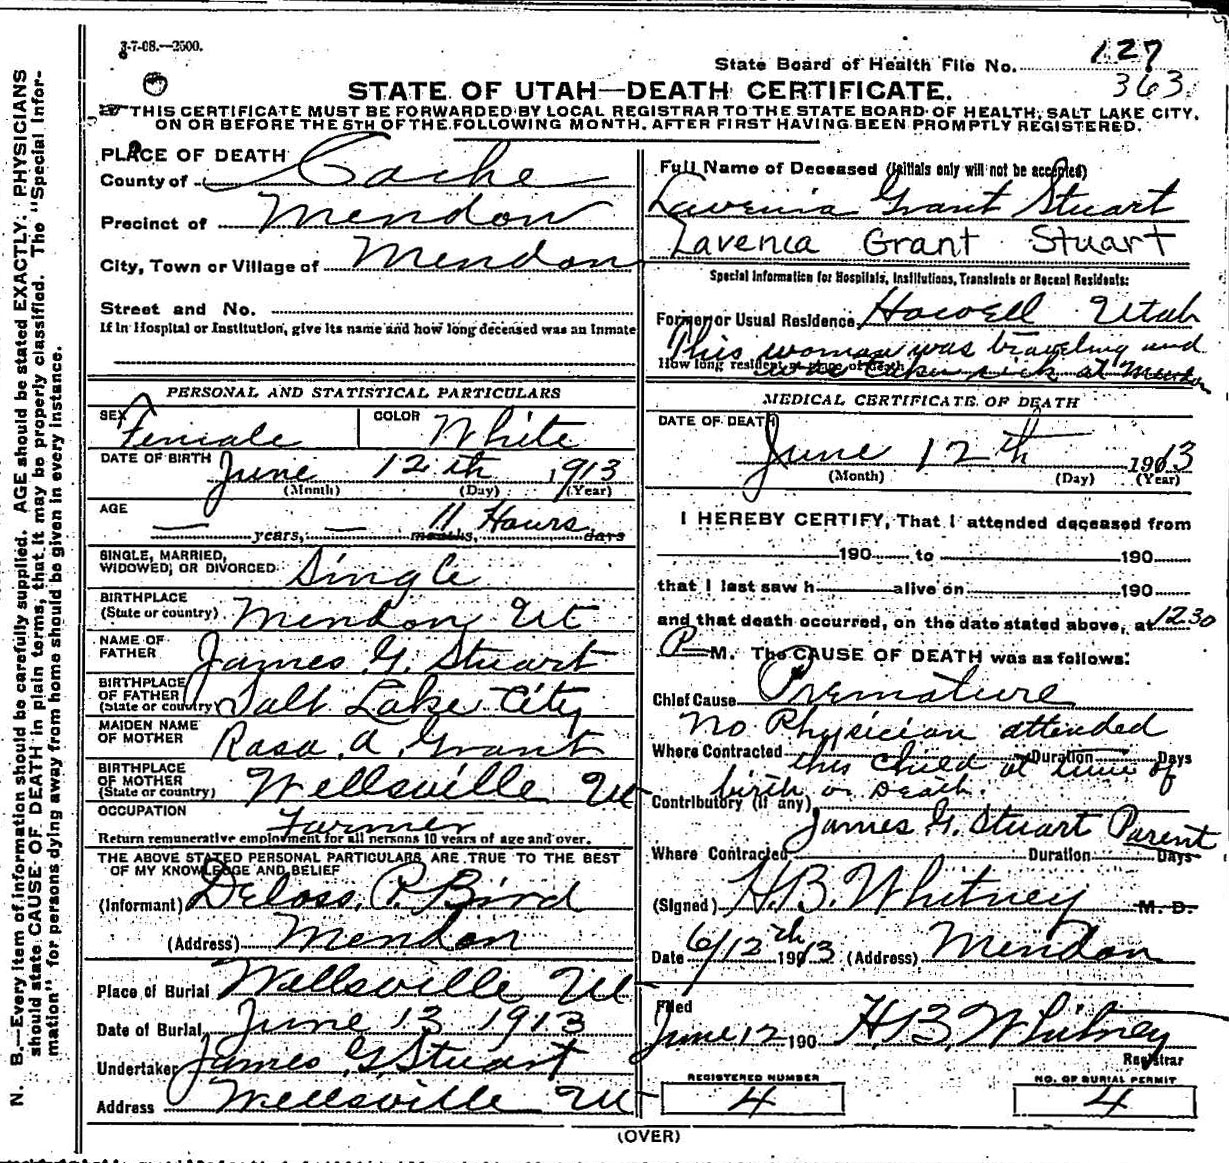 3-7-08.—2500.
State Board of Health File No. 127
363
STATE OF UTAH—DEATH CERTIFICATE.
THIS CERTIFICATE MUST BE FORWARDED BY LOCAL REGISTRAR TO THE STATE BOARD OF HEALTH, SALT LAKE CITY,
ON OR BEFORE THE 5TH OF THE FOLLOWING MONTH, AFTER FIRST HAVING BEEN PROMPTLY REGISTERED.
PLACE OF DEATH
County of Cache
Precinct of Mendon
City, Town or Village of Mendon
Street and No.
If in Hospital or Institution, give its name and how long deceased was an Inmate
PERSONAL AND STATISTICAL PARTICULARS
SEX Female COLOR White
DATE OF BIRTH June 12th 1913
(Month) (Day) (Year)
AGE
— years, — months, 11 Hours days
SINGLE, MARRIED,
WIDOWED, OR DIVORCED Single
BIRTHPLACE
(State or country) Mendon Ut
NAME OF
FATHER James G. Stuart
BIRTHPLACE
OF FATHER
(State or country) Salt Lake City
MAIDEN NAME
OF MOTHER Rasa A Grant
BIRTHPLACE
OF MOTHER
(State or country) Wellsville Ut
OCCUPATION
Farmer
Return remunerative employment for all persons 10 years of age and over.
THE ABOVE STATED PERSONAL PARTICULARS ARE TRUE TO THE BEST
OF MY KNOWLEDGE AND BELIEF
(Informant) Deloss P. Bird
(Address) Mendon
Place of Burial Wellsville Ut
Date of Burial June 13 1913
Undertaker James G Stuart
Address Wellsville Ut
Full Name of Deceased (Initials only will not be accepted)
Lavenia Grant Stuart
Lavenia Grant Stuart
Special Information for Hospitals, Institutions, Transients or Recent Residents:
Former or Usual Residence Howell Utah
This woman was traveling and
How long resident at place of death
was taken sick at Mendon
MEDICAL CERTIFICATE OF DEATH
DATE OF DEATH
June 12th 1913
(Month) (Day) (Year)
I HEREBY CERTIFY, That I attended deceased from
190 to 190
that I last saw h alive on 190
and that death occurred, on the date stated above, at 12 30
P M. The CAUSE OF DEATH was as follows:
Chief Cause Premature
No Physician attended
Where Contracted Duration Days
this child at time of
birth or Death.
Contributory (if any)
James G. Stuart Parent
Where Contracted Duration Days
(Signed) H. B. Whitney M. D.
Date 6/12th 1913 (Address) Mendon
Filed
June 12 190 H. B. Whitney
Registrar
REGISTERED NUMBER
4
NO. OF BURIAL PERMIT
4
(OVER)
N. B.—Every item of information should be carefully supplied. AGE should be stated EXACTLY. PHYSICIANS
should state CAUSE OF DEATH in plain terms, that it may be properly classified. The "Special Infor-
mation" for persons dying away from home should be given in every instance.